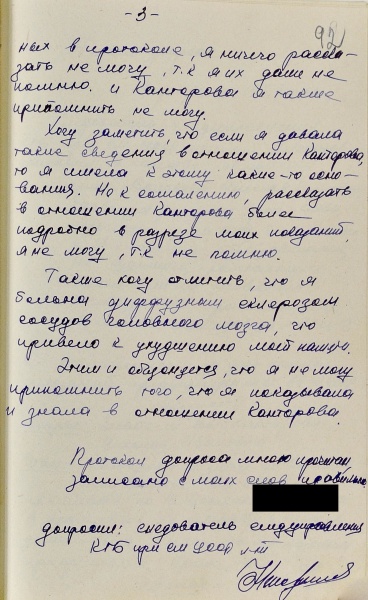 - 3 -
92
ных в протоколе, я ничего расска-
зать не могу, т.к. я их даже не
помню. и Канторова я также
припомнить не могу.
Хочу заметить, что если я давала
такие сведения в отношении Канторова,
то я имела к этому какие-то осно-
вания. Но к сожалению, рассказать
в отношении Канторова более
подробно в разрезе моих показаний,
я не могу, т.к. не помню.
Также хочу отметить, что я
больна диффузным склерозом
сосудов головного мозга, что
привело к ухудшению моей памяти.
Этим и объясняется, что я не могу
припомнить того, что я показывала
и знала в отношении Канторова.
Протокол допроса мною прочитан
записано с моих слов правильно.
допросил: следователь следуправления
КГБ при СМ